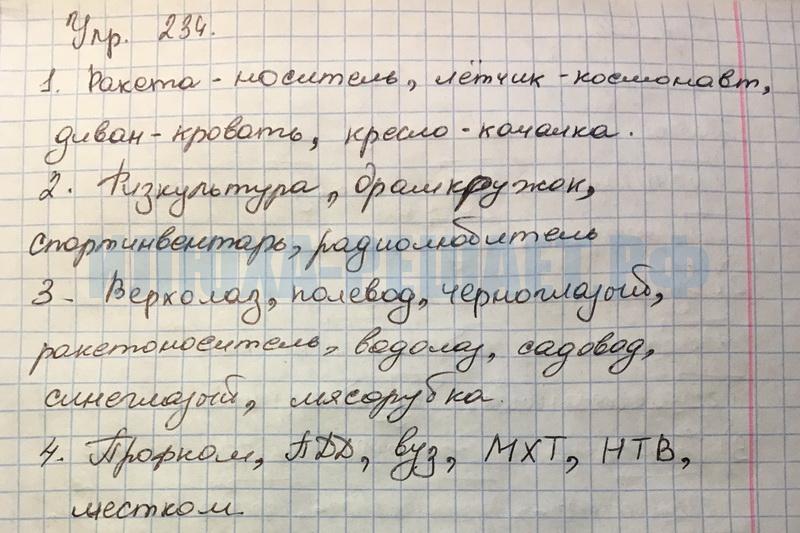 Упр. 234.
1. Ракета - носитель, лётчик - космонавт,
диван - кровать, кресло - качалка.
2. Физкультура, драмкружок,
спортинвентарь, радиолюбитель
3. Верхолаз, полевод, черноглазый,
ракетоноситель, водолаз, садовод,
синеглазый, мясорубка.
4. Профком, АДД, вуз, МХТ, НТВ,
местком.